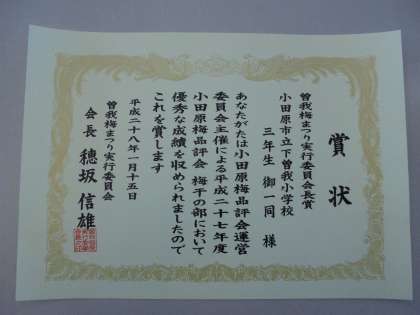 賞状
曽我梅まつり実行委員会長賞
小田原市立下曽我小学校
三年生 御一同 様
あなたがたは小田原梅品評会運営
委員会主催による平成二十七年度
小田原梅品評会 梅干の部において
優秀な成績を収められましたので
これを賞します
平成二十八年一月十五日
曽我梅まつり実行委員会
会長 穂坂 信雄